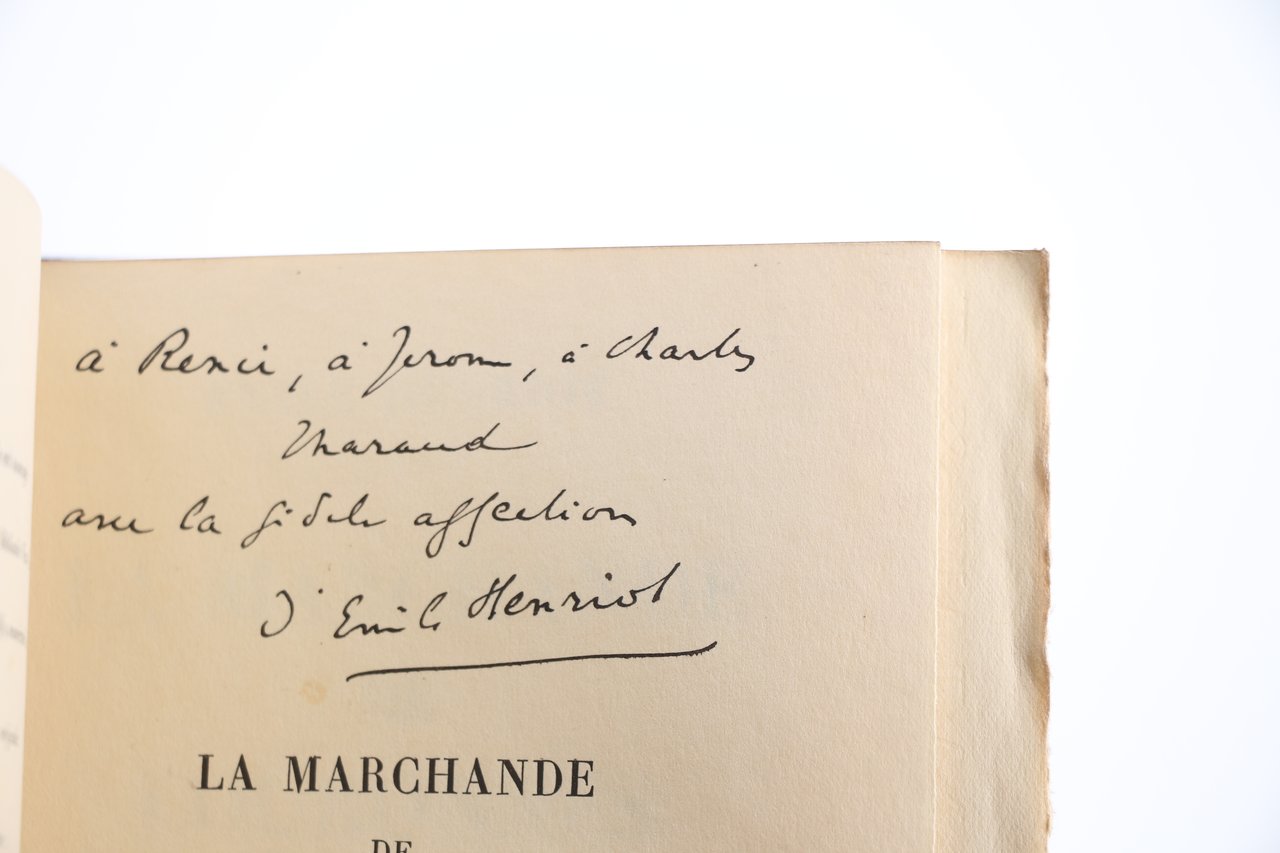 à Renée, à Jerome, à Charles
Tharaud
avec la fidele affection
d'Emile Henriot
LA MARCHANDE
DE